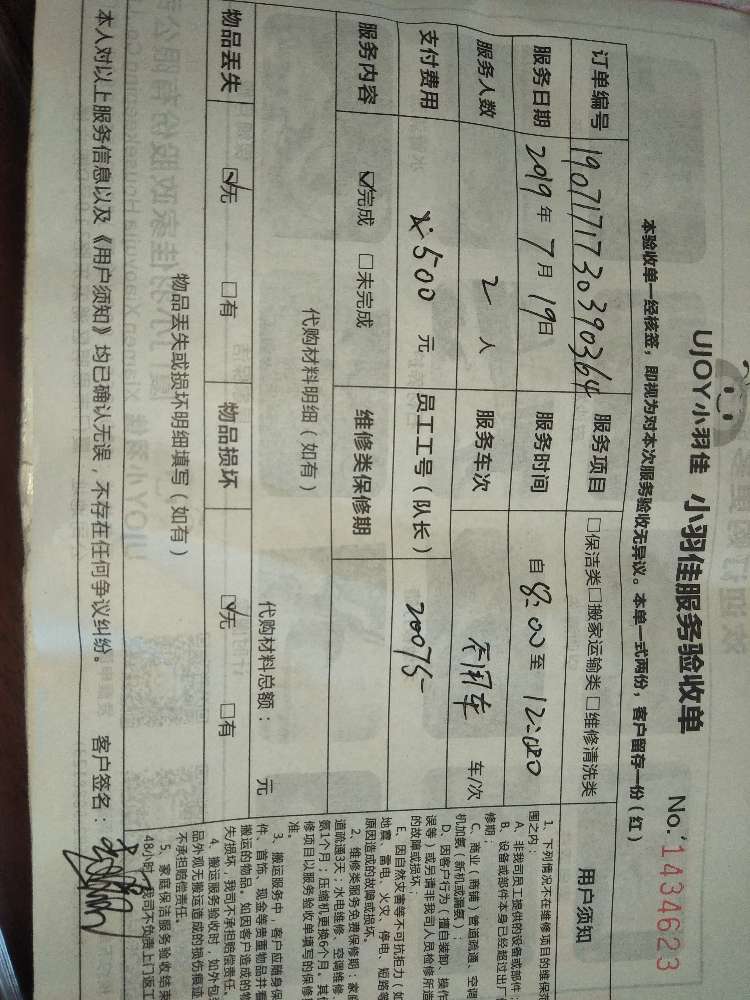 UJOY小羽佳 小羽佳服务验收单 No.1434623
本验收单一经核签，即视为对本次服务验收无异议。本单一式两份，客户留存一份（红）
订单编号 1907171730390364 服务项目 □保洁类□搬家运输类□维修清洗类
服务日期 2019年7月19日 服务时间 自8:00至12:00
服务人数 2人 服务车次 车/次
支付费用 ¥500元 员工工号（队长） 20075
服务内容 ☑完成 □未完成 维修类保修期
代购材料明细（如有） 代购材料总额： 元
物品丢失 ☑无 □有 物品损坏 ☑无 □有
物品丢失或损坏明细填写（如有）
本人对以上服务信息以及《用户须知》均已确认无误，不存在任何争议纠纷。 客户签名：
用户须知
1、下列情况不在维修项目的维保范
围之内：
A、非我司员工提供的设备或部件；
B、设备或部件本身已经超过出厂
修期；
C、商业（商铺）管道疏通、空调
机加氨（新机或漏氨）；
D、因客户行为（擅自装卸、操作
误等）或另请非我司人员检修所造
的故障或损坏；
E、因自然灾害等不可抗拒力（如
地震、雷电、火灾、停电、短路等
原因造成的故障或损坏。
2、维修类服务免费保修期：家庭
道疏通3天；水电维修、空调维修
氨1个月；压缩机更换6个月。其他
修项目以服务验收单填写的保修期
准。
3、搬运服务中，客户应随身保
件、首饰、现金等贵重物品并看
搬运的物品。如因客户造成的物
失/损坏，我司不承担赔偿责任。
4、搬运服务验收时，如外包
品外观无搬运造成的损伤痕迹
不承担赔偿责任。
5、家庭保洁服务验收结束
48小时，我司不负责上门返工